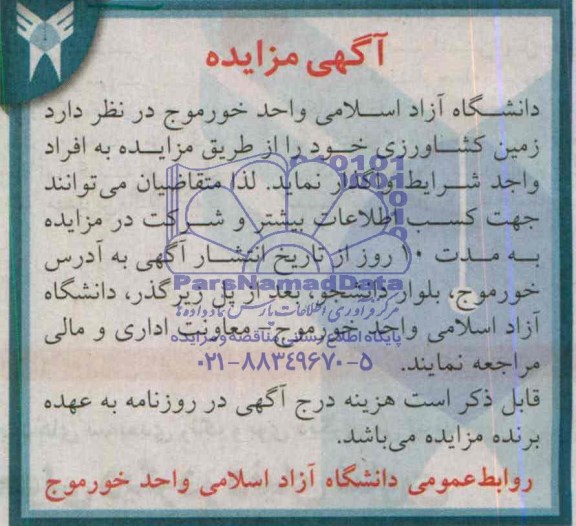 آگهی مزایده
دانشگاه آزاد اسلامی واحد خورموج در نظر دارد
زمین کشاورزی خود را از طریق مزایده به افراد
واجد شرایط واگذار نماید. لذا متقاضیان می‌توانند
جهت کسب اطلاعات بیشتر و شرکت در مزایده
به مدت ۱۰ روز از تاریخ انتشار آگهی به آدرس
خورموج، بلوار دانشجو، بعد از پل زیرگذر، دانشگاه
آزاد اسلامی واحد خورموج - معاونت اداری و مالی
مراجعه نمایند.
قابل ذکر است هزینه درج آگهی در روزنامه به عهده
برنده مزایده می‌باشد.
روابط عمومی دانشگاه آزاد اسلامی واحد خورموج
ParsNamadData
مرکز فرآوری اطلاعات پارس نماد داده‌ها
پایگاه اطلاع رسانی مناقصه و مزایده
۰۲۱-۸۸۳۴۹۶۷۰-۵